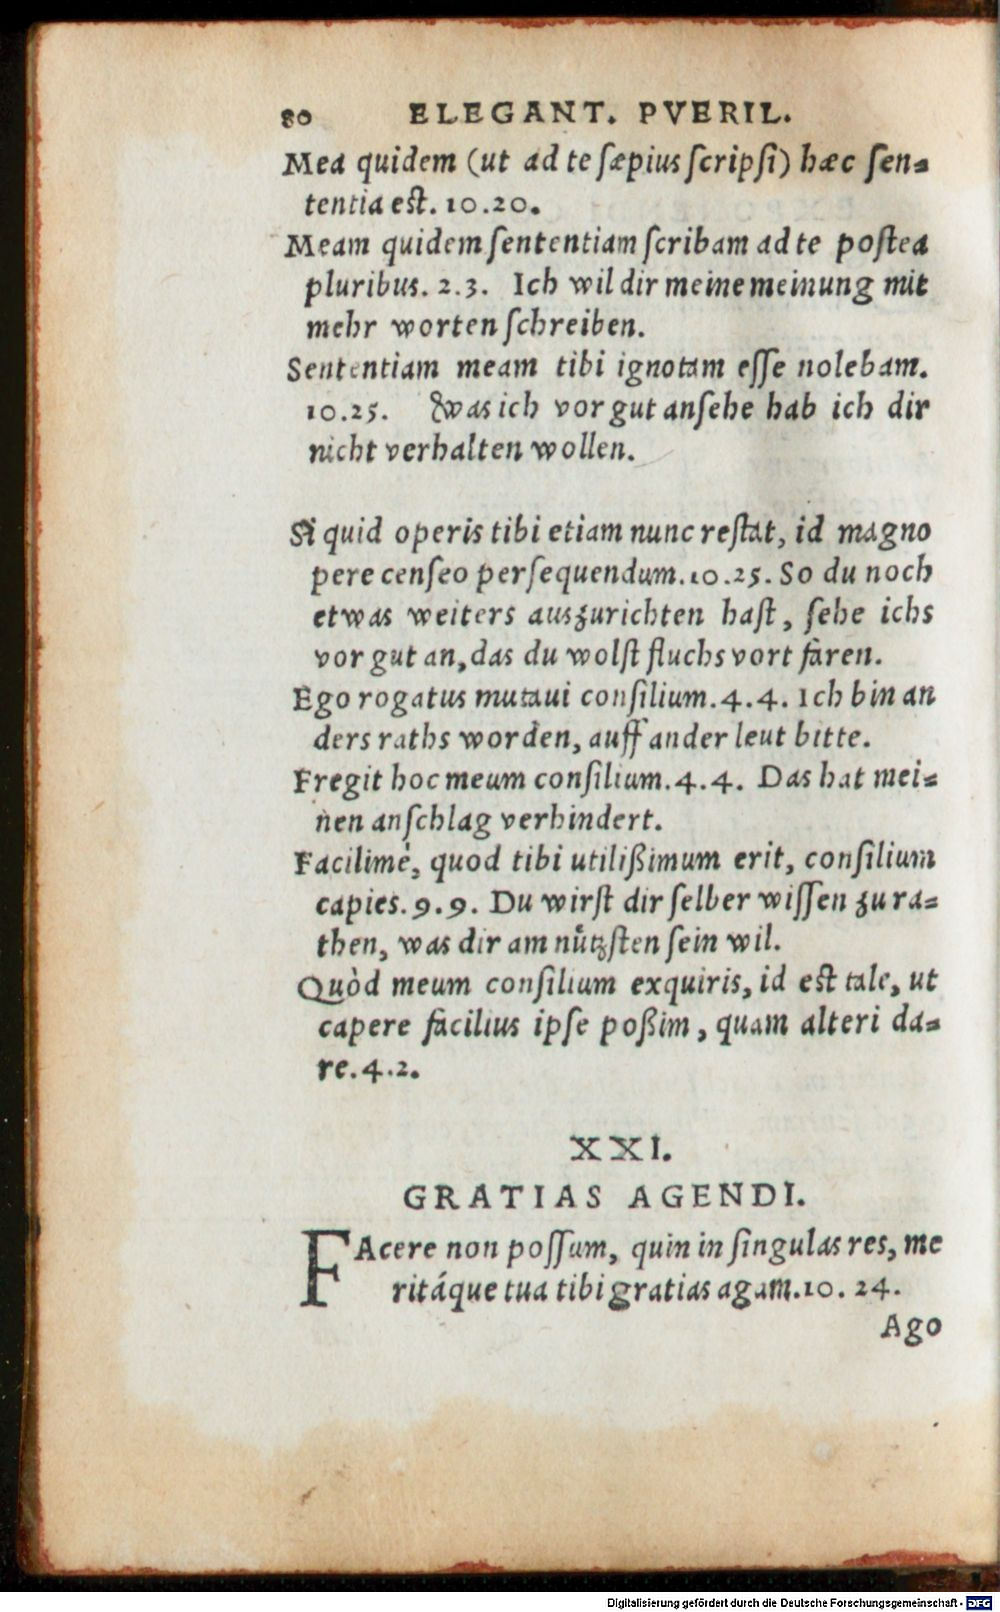 80 ELEGANT. PVERIL.
Mea quidem (ut ad te sæpius scripsi) hæc sen=
tentia est. 10.20.
Meam quidem sententiam scribam ad te postea
pluribus. 2.3. Ich wil dir meine meinung mit
mehr worten schreiben.
Sententiam meam tibi ignotam esse nolebam.
10.25. Was ich vor gut ansehe hab ich dir
nicht verhalten wollen.
Si quid operis tibi etiam nunc restat, id magno
pere censeo persequendum. 10.25. So du noch
etwas weiters auszurichten hast, sehe ichs
vor gut an, das du wolst fluchs vort faren.
Ego rogatus mutaui consilium. 4.4. Ich bin an
ders raths worden, auff ander leut bitte.
Fregit hoc meum consilium. 4.4. Das hat mei=
nen anschlag verhindert.
Facilimè, quod tibi utilißimum erit, consilium
capies. 9.9. Du wirst dir selber wissen zu ra=
then, was dir am nützsten sein wil.
Quòd meum consilium exquiris, id est tale, ut
capere facilius ipse poßim, quam alteri da=
re. 4.2.
XXI.
GRATIAS AGENDI.
FAcere non possum, quin in singulas res, me
ritáque tua tibi gratias agam. 10. 24.
Ago
Digitalisierung gefördert durch die Deutsche Forschungsgemeinschaft - DFG